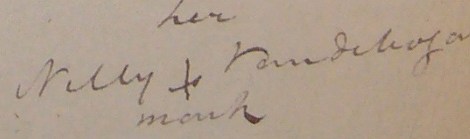 her
Nelly + Vandeboga
mark